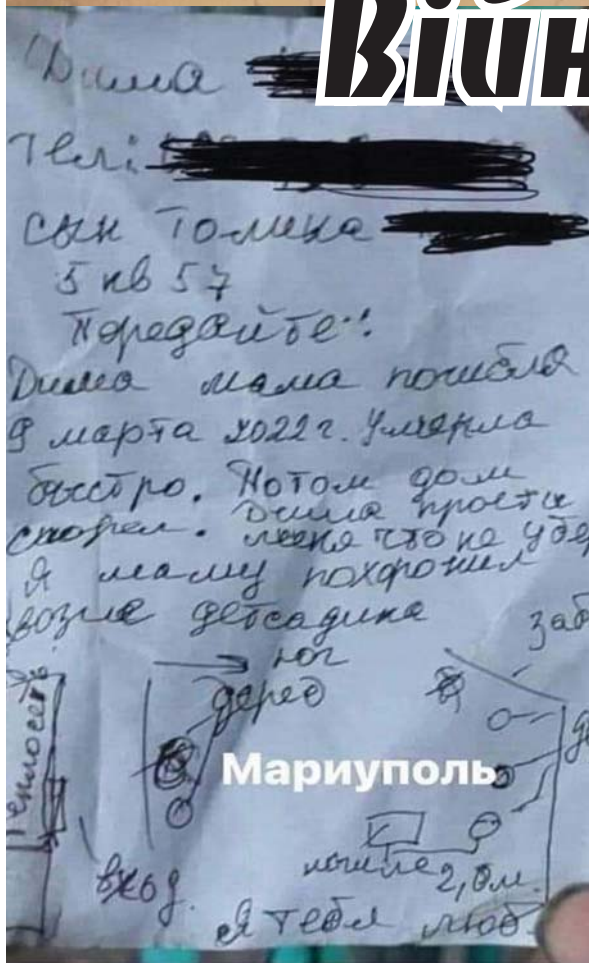 Війн
Дима
Тел:
сын Толика
5 кв 57
Передайте!
Дима мама погибла
9 марта 2022 г. Умерла
быстро. Потом дом
сгорел. Дима прости
меня что не убе
Я маму похоронил
возле детсадика
заб
юг
дерев
Теплосеть
Мариуполь
де
вход.
могила 2,0 м.
Я тебя люб